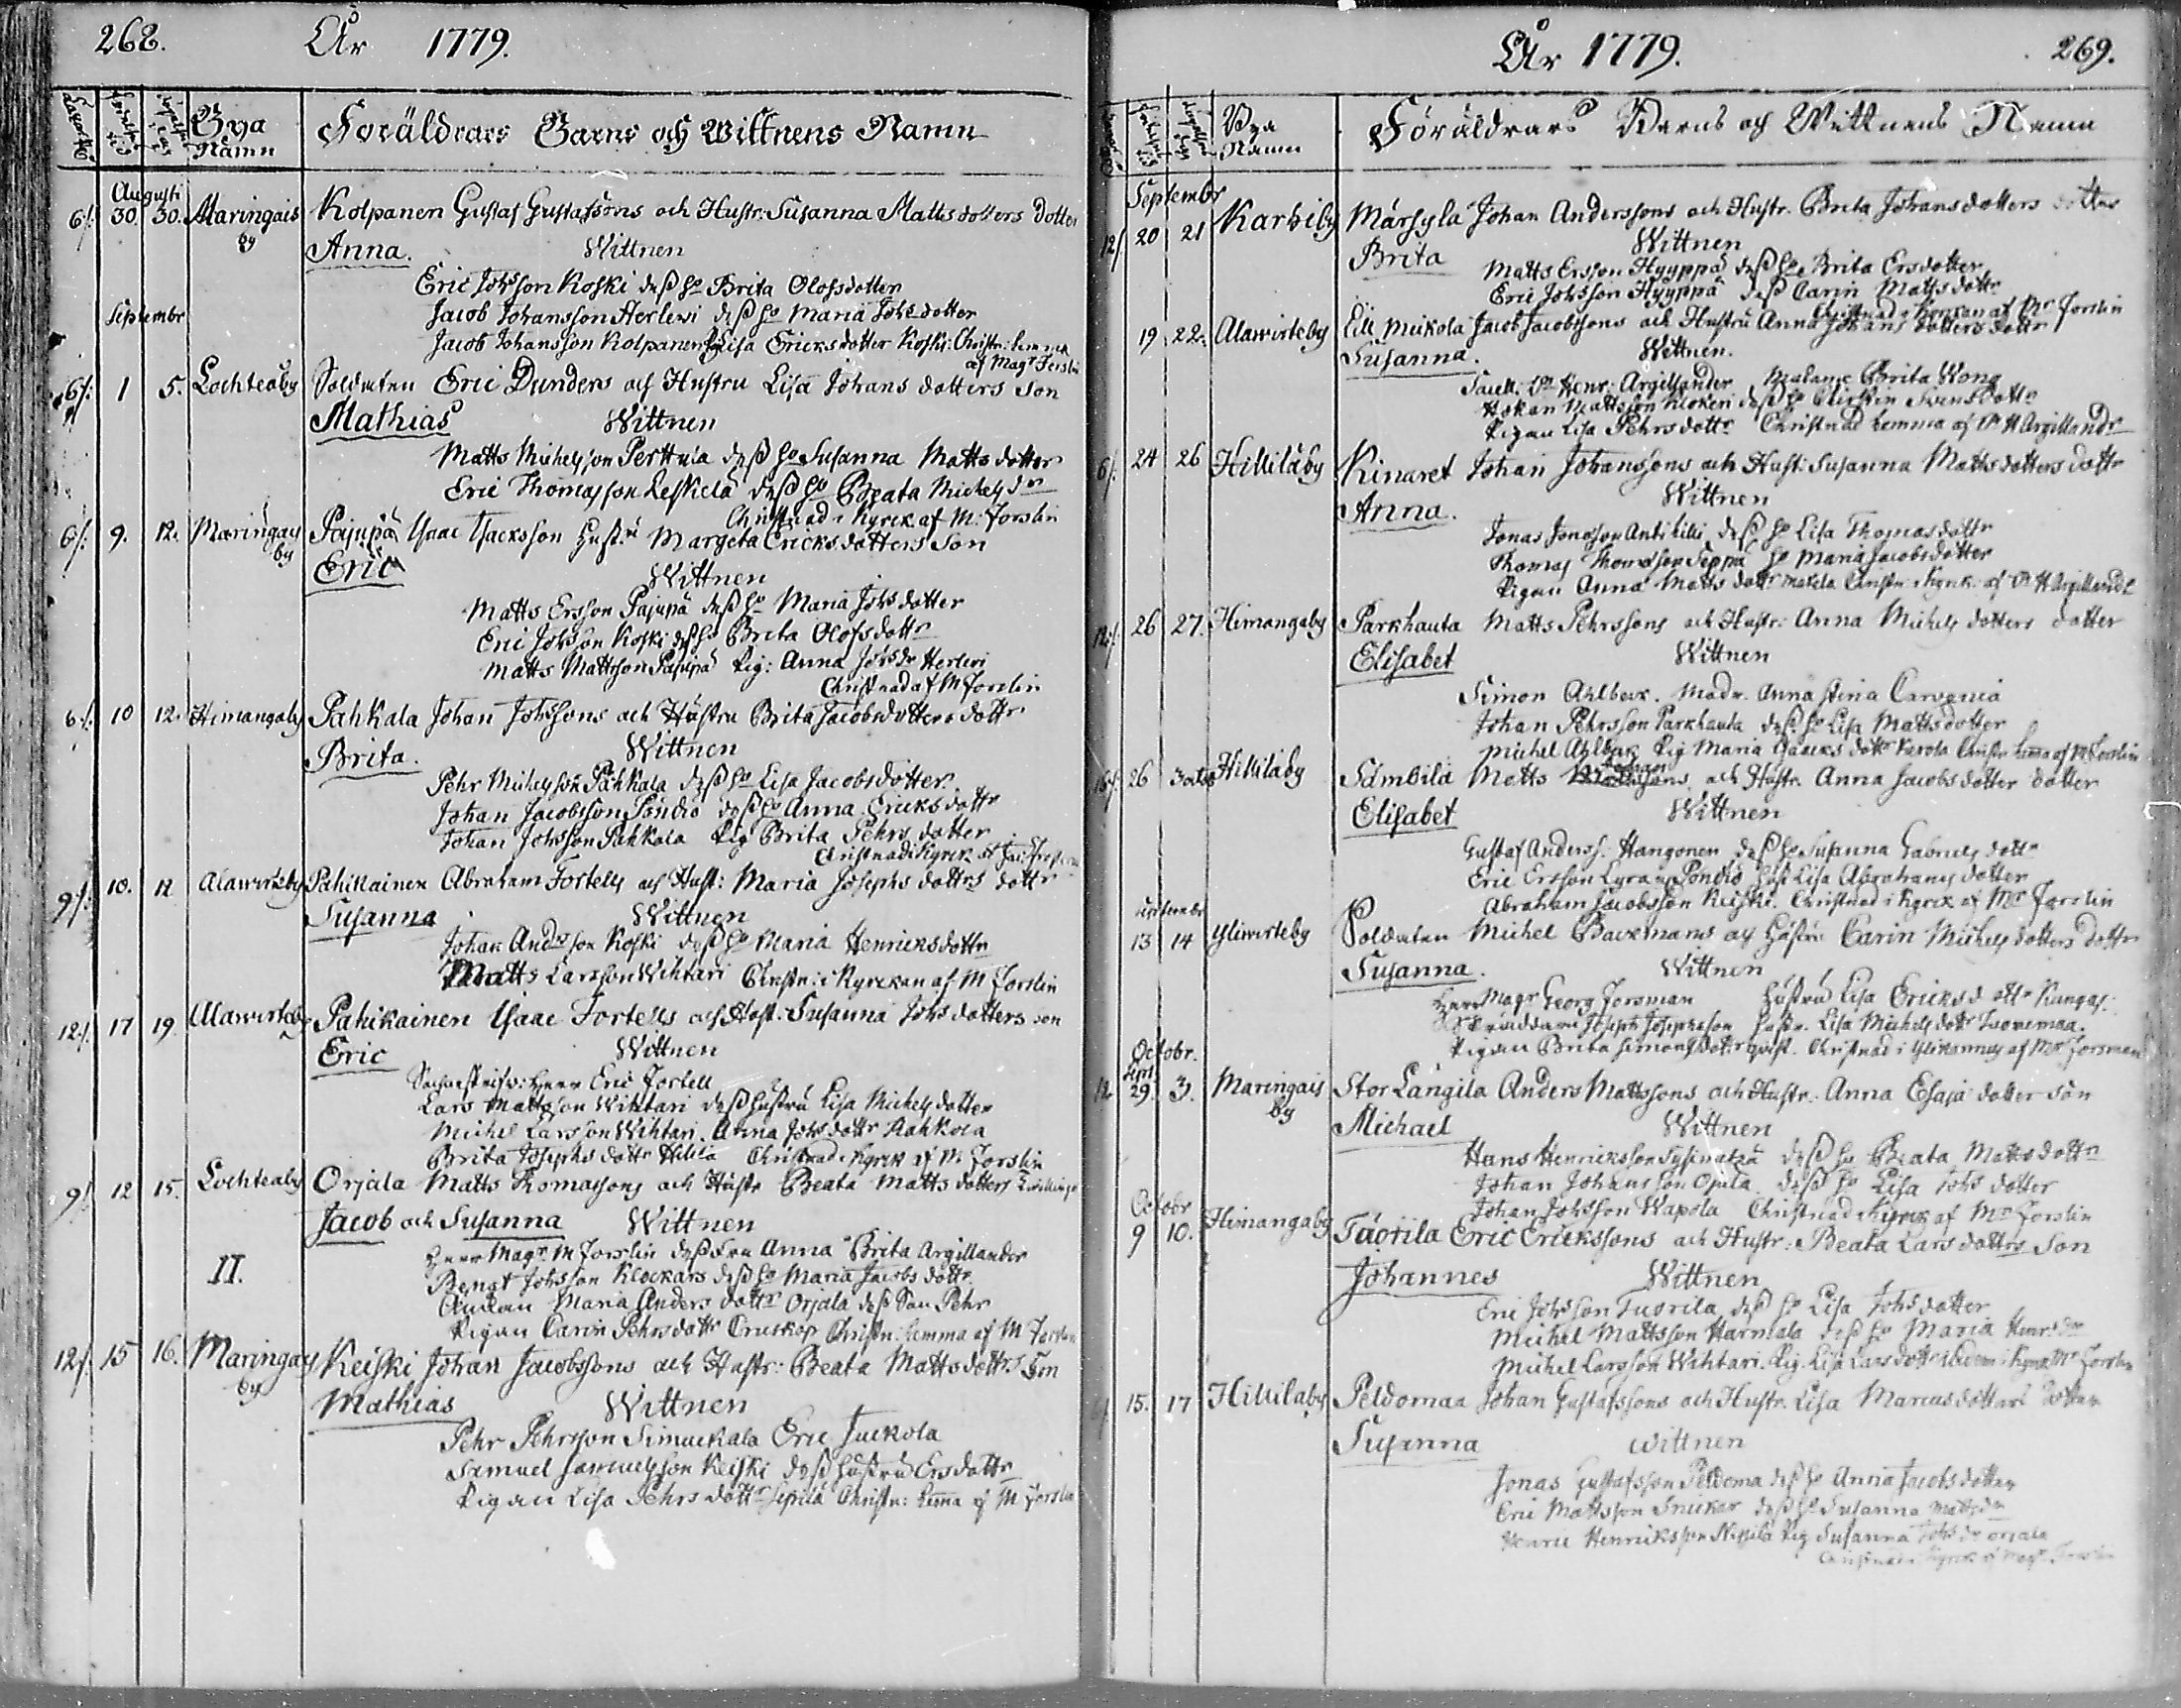 268. År 1779.
Bya Namn Föräldrars Barns och Wittnens Namn
Augusti
6/. 30. 30. Maringais by Kolpanen Gustaf Gustafsons och Hustr: Susanna Matts dotters dotter
Anna. Wittnen
Eric Johsson Koski dess ho Brita Olofsdotter
Jacob Johansson Herlewi dess ho Maria Johsdotter
Jacob Johansson Kolpanen Lisa Ericksdotter Koski: Christn: hemma
af Magr Forslin
Septembr
6/. 1 5. Lochteåby Soldaten Eric Dunders och Hustru Lisa Johans dotters Son
Mathias Wittnen
Matts Michelsson Perttula dess ho Susanna Matts dotter
Eric Thomasson Leskelä dess ho Beata Michelsdr
Christnad i Kyrck. af M: Forslin
6/. 9. 12. Maringais by Pajupä Isaac Isacksson Hustru Margeta Ericks dotters Son
Eric Wittnen
Matts Ersson Pajupä dess ho Maria Johs dotter
Eric Johsson Koski dess ho Brita Olofsdottr
Matts Mattsson Pajupä Pig: Anna Johsdr Herlewi
Christnad af M Forslin
6./. 10 12. Himangaby Pahkala Johan Johssons och Hustru Brita Jacobsdotters dottr
Brita. Wittnen
Pehr Michelsson Pahkala dess ho Lisa Jacobsdotter.
Johan Jacobsson Pöndiö dess ho Anna Ericksdottr
Johan Johsson Pahkala Pig Brita Pehrs dotter
Christnad i Kyrck. af
9/. 10. 12 Alawirteby Pahikainen Abraham Fortells och Hust: Maria Josephs dotters dottr
Susanna Wittnen
Johan Andersson Koski dess ho Maria Henricksdottr
Matts Larsson Wihtari Christn: i Kyrckan af M Forslin
12./. 17 19. Alawirteby Pahikainen Isaac Fortells och Host: Susanna Johs dotters son
Eric Wittnen
Herr Eric Fortell
Lars Mattsson Wihtari dess hustru Lisa Michels dotter
Michel Larsson Wihtari. Anna Johs dottr Rahkola
Brita Josephs dottr Hililä Christnad i Kyrck af M. Forslin
9/. 12 15. Lochteaby Orjala Matts Thomassons och Hustr Beata Matts dotters
Jacob och Susanna Wittnen
II. Herr Magr M Forslin dess Fru Anna Brita Argillander
Bengt Johsson Klockars dess ho Maria Jacobs dottr.
Enkan Maria Anders dottr Orjala dess Son Pehr
Pigan Carin Pehrsdottr Oruskop Christn: hemma af M Forslin
12/. 15 16. Maringais by Keiski Johan Jacobssons och Hustr: Beata Mattsdottrs Son
Mathias Wittnen
Pehr Pehrsson Simuckala Eric Juckola
Samuel Samuelsson Keiski dess hustru Ersdottr
Pigan Lisa Pehrs dottr Sepilä Christn: hema af M Forslin
År 1779. 269.
Bya Namn Föräldrars Barns och Wittnens Namn
Septembr
12/. 20 21 Karhiby Märsylä Johan Anderssons och Hustr. Brita Johansdotters dotter
Brita Wittnen
Matts Ersson Hyyppä dess ho Brita Ersdotter
Eric Johsson Hyyppä dess Carin Matts dottr
Christnad i Kyrckan af Mr Forslin
19 22. Alawirteby Lill Meikola Jacob Jacobssons och Hustru Anna Johans dotters dottr
Susanna. Wittnen.
Henr: Argillander Madame Brita Wong
Håkan Mattsson Klokeri dess ho Christin Svensdottr
Pigan Lisa Pehrsdottr Christnad hemma af H Argillandr
6/. 24 26 Hilliläby Kinaret Johan Johanssons och Hust: Susanna Mattsdotters dottr
Anna. Wittnen
Jonas Jonsson Antikilli dess ho Lisa Thomasdottr
Thomas Thomsson Seppä ho Maria Jacobsdotter
Pigan Anna Matts dottr Makela Christn. i Kyrck. af H Argilland
12./. 26 27. Himangaby Parkhauta Matts Pehrssons och Hustr: Anna Michels dotters dotter
Elisabet Wittnen
Simon Ahlbeck. Madr. Anna Stina Carvenia
Johan Pehrsson Parkhauta dess ho Lisa Mattsdotter
Michel Ahlbeck Pig Maria Isaacks dottr Karola Christn hema af M Forslin
26 3 octob Hilliläby Sämbilä Matts Johans och Hustr. Anna Jacobs dotter dotter
Elisabet Wittnen
Gustaf Anderss. Hangonen dess ho Susanna Gabriels dottr
Eric Ersson Pöndiö hust Lisa Abrahams dotter
Abraham Jacobsson Keiski. Christnad i Kyrck af Mr Forslin
13 14 Yliwirteby Soldaten Michel Backmans och Hustru Carin Michels dotters dottr
Susanna. Wittnen
Herr Magr Georg Forsman Hustru Lisa Ericksdottr Kangas:
Skräddaren Joseph Josephsson hustr. Lisa Michelsdottr Isonemaa.
Pigan Brita Simonsdottr Christnad i Ylikannus af Mr Forsman
Octobr.
Sept
12 29. 3. Maringais by Stor Långila Anders Mattssons och Hustr: Anna Esaja dotter sön
Michael Wittnen
Hans Henricksson dess ho Beata Mattsdottr
Johan Johansson Ojala dess ho Lisa Johs dotter
Johan Johsson Wapola Christnad i Kyrck af Mr Forslin
Octobr
9 10. Himangaby Tuorila Eric Erickssons och Hustr: Beata Lars dottrs Son
Johannes Wittnen
Eric Johsson Tuorila dess ho Lisa Johsdotter
Michel Mattsson Harmala dess ho Maria Henrsdr
Michel Larsson Wihtari. Pig. Lisa Larsdottr ibidem i Kyrck Mr Forslin
15. 17 Hilliläby Peldomaa Johan Gustafssons och Hustr. Lisa Marcusdotters dotter
Susanna Wittnen
Jonas Gustafsson Peldoma dess ho Anna Jacobsdotter
Eric Mattsson Snickar dess ho Susanna Mattsdr
Henric Henricksson Niskilä Pig Susanna Johsdr Orjala
Christnad i Kyrck af Magr Forslin